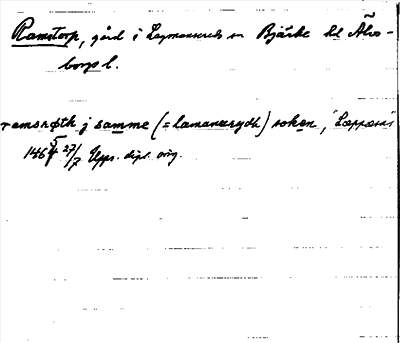 Ramstorp, gård i Lagmansereds sn Bjärke hd Älvs-
borgs l.
ramsrøth j samme (= lamanærydh) sokən,
146 5/4 27/7 Upps. dipl. orig.